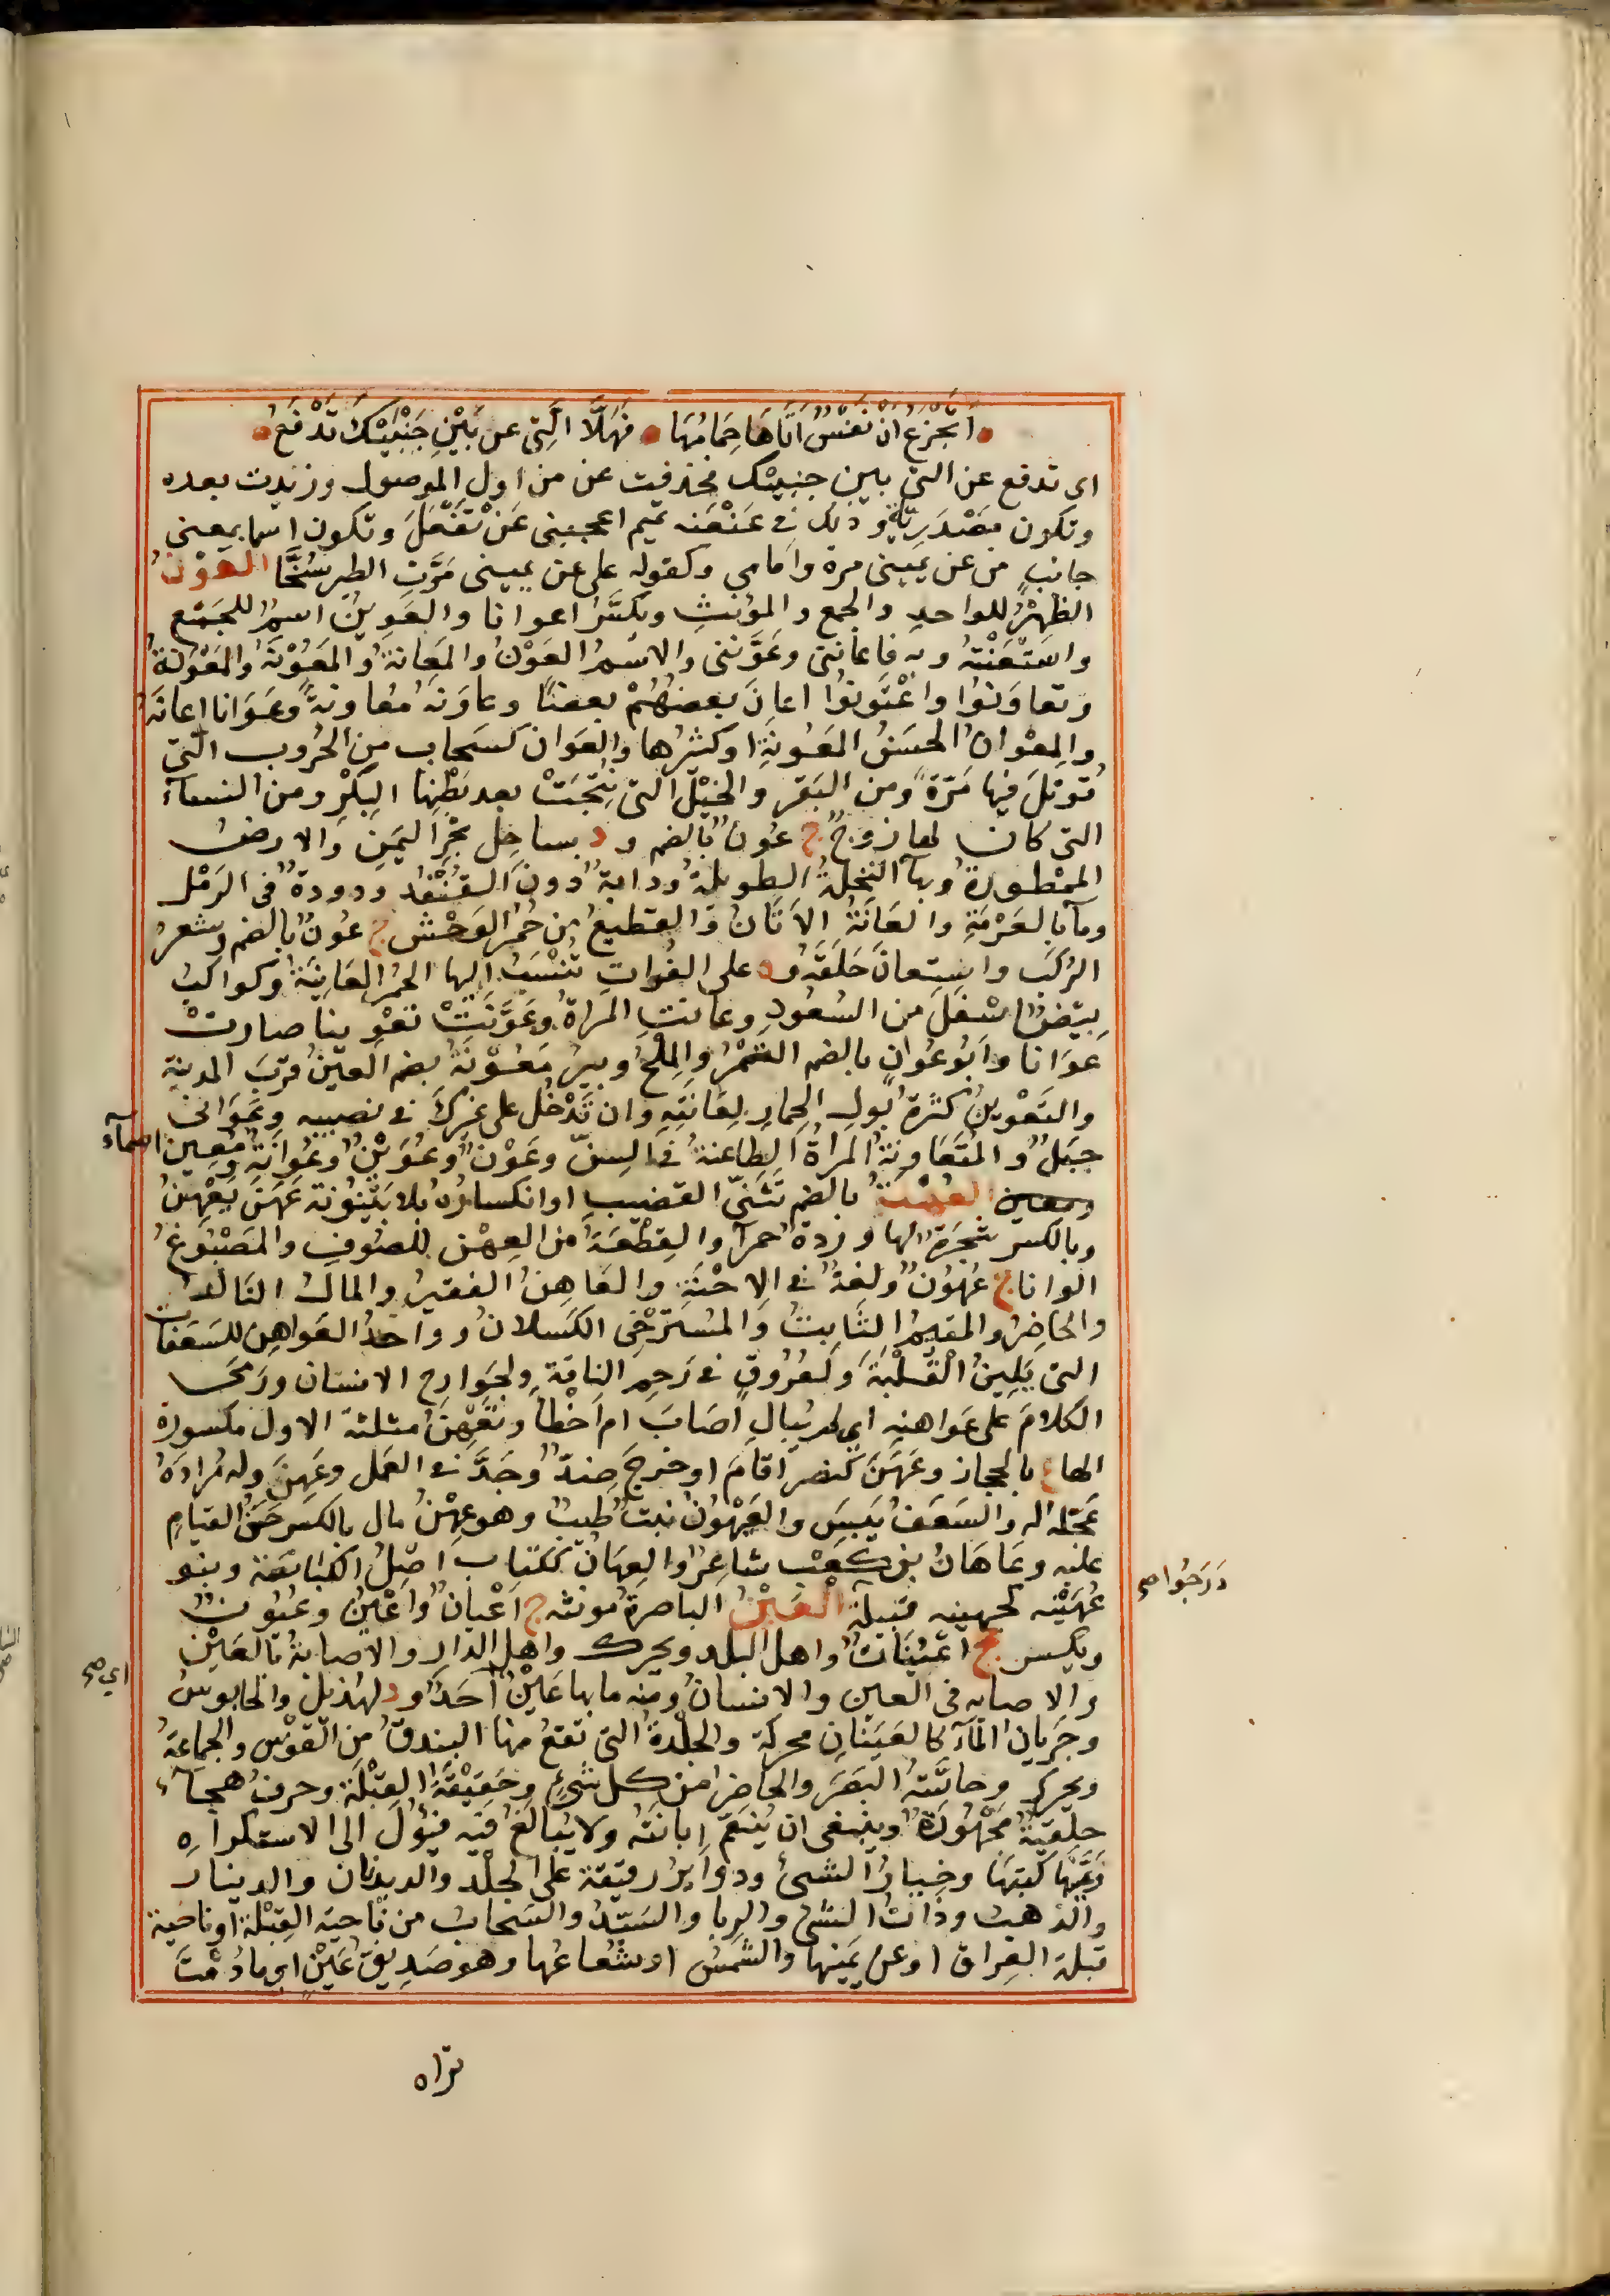 اَتَجْزَعُ اَنْ نَفْسٌ اَتَاهَا حِمَامُهَا فَهَلَّا الَّتِي عن بَيْنِ جَنْبَيْكَ تَدْفَعُ
اي تدفع عن التي بين جنبيك فحذفت عن من اول الموصول وزيدت بعده
وتكون مَصْدَرِيَّةً وذلك في عَنْعَنَه تميم اعجبني عَنْ تَفْعَلَ وتكون اسما بمعنى
جانبٍ من عن يميني مرة وامامي وكقوله على عن يميني مَرَّتِ الطير سُنَّحًا العَوْنُ
الظَهِيرُ للواحدِ والجمع والمؤنثِ ويُكَسَّرُ اعوانا والعَوِينُ اسمٌ للجَمْعِ
واسْتَعَنْتُهُ وبه فاعانني وعَوَّنَني والاسْمُ العَوْنُ والمَعَانَةُ والمَعُوْنَةُ والمَعْوُنَةُ
وتعاوَنُوا واعْتَوَنُوا اعانَ بعضُهُمْ بعضًا وعاوَنَهُ مُعَاونَةً وعِوَانا اعانَهُ
والمِعْوانُ الحسَنُ المَعُونَةِ او كثيرُها والعَوان كسَحاب من الحُروب التي
قُوتِلَ فيها مَرَّةً ومن البَقر والخَيْل التي نُتِجَتْ بعد بَطْنِها البِكْرِ ومن النسآء
التي كان لها زوجٌ ج عُونٌ بالضم و د بساحِل بحْرِ اليَمَنِ والارضُ
المَمْطورَةُ وبهآ النخلةُ الطويلةُ ودابةٌ دونَ القُنْفُد ودودةٌ في الرَمْل
ومآ بالعَرْمَةِ والعَانَةُ الاَتَانُ والقطيعُ من حُمُر الوَحْش ج عُونٌ بالضم وشعرُ
الرَكَب واستعانَ حَلَقَهُ و د على الفُراتِ تُنْسَبُ اليها الخمر العَانِيَةُ وكواكبُ
بيضٌ اسْفَلَ من السُعُودِ وعانتِ المراةُ وعَوَّنَتْ تعْوِينا صارتْ
عوَانا وابُو عُوانٍ بالضم التَمْرُ والمِلْحُ وبيرُ مَعُوْنَةُ بضم العينُ قربَ المدينة
والتَعْوِينُ كثرةُ بُولِ الحِمارِ لِعَانَتِهِ وان تَدْخُل على غيْرِكَ في نصيبه وعَوَانى
جبَلٌ والمُتَعَاوِنَةُ المراةُ الطاعنةُ في السِنّ وعَوْنٌ وعُوَيْنٌ وعَوَانَةٌ ومُعِين اسمآء
العُهْنَةُ بالضم تَثَنِّي القضيبِ او انكسارُه بلا بَيْنُونة عَهَنَ يَعْهِنُ
وبالكسر شجَرَةٌ لها ورْدةٌ حمرآ والقِطْعَةُ من العِهْن للصُوفِ والمَصْبُوغُ
الوانا ج عُهُونٌ ولغةٌ في الاحْنَةِ والعَاهِنُ الفقيرُ والمالُ التالدُ
والحاضِرُ والمقيمُ الثَابتُ والمُسْتَرْخِي الكَسْلانُ وواحدُ العَواهِن للسَعَفاتِ
التي يَلِينَ القُلْبَةَ ولعُرُوقٍ في رَحِم الناقة ولجَوارِحِ الانسان ورَمَى
الكلامَ على عَواهنِه اي لم يُبالِ اَصَابَ ام اَخْطأ وتعْهِنُ مثلثة الاول مكسورة
الهاء ع بالحجاز وعَهَنَ كنصر اَقَامَ او خرَجَ ضِدٌّ وجَدَّ في العَمَل وعَهِنَ وله مُرادَهُ
عَجَّلَه له والسَعَفُ يَبِسَ والعَيْهُونُ نبتٌ طيبٌ وهو عِهْنُ مال بالكسر حَسَنُ القيامِ
عليه وعَاهَانُ بن كعْب شاعِرٌ والعِهَانُ ككتاب اصْلُ الكِبَاسَةِ وبنو
عُهَيْنَه كجهينه قبيلةٌ دَرَجُوا صح العَيْنُ الباصرةُ مونثه ج اَعْيانٌ واعْيُنٌ وعُيُونٌ
ويكسر جج اعْيُنَاتٌ واهل البلد ويحرك واهل الدار والاصابةُ بالعَيْن
والاصابه في العين والانسانُ ومنه ما بها عَيْنٌ اي صح اَحَدٌ و د لهُذيل والجاسوسُ
وجَرَيان المآءِ كالعَيَنانِ محركة والجِلْدَةُ التي تقعُ فيها البندقُ من القَوْس والجماعةُ
ويحرك وحاسَّةُ البَصَرَ والحاضرُ من كل شَيْءٍ وحَقِيْقَةُ القِبْلَة وحرفُ هجآء
حلقيةٌ مَجْهُورَةٌ وينبغى ان يُنْعَمَ ابانَتُه ولا يُبالَغُ فيه فيَؤُلَ الى الاستكراه
وعَيَّنَها كتبَهَا وخيارُ الشيءُ ودوآيرُ رقيقة على الجِلْد والديدبان والدينار
والذهبُ وذاتُ الشيء والرِبا والسَيّدُ والسَحابُ من ناحية القِبْلة او ناحية
قبلة العِراق او عن يَمينها والشمسُ او شُعاعُها وهو صَدِيقُ عَيْنٍ اي ما دُمْتَ
تراه